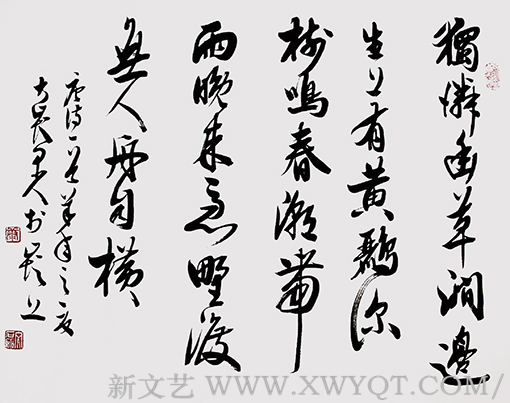 獨憐幽草澗邊
生上有黃鸝深
樹鳴春潮帶
雨晚來急野渡
無人舟自橫
唐詩一首
新文艺 WWW.XWYQT.COM/